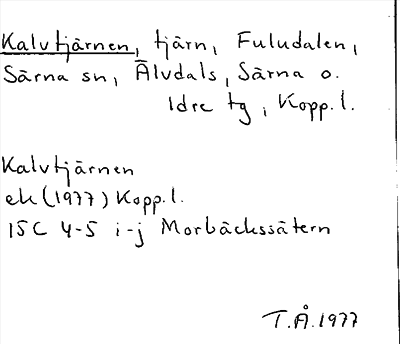 Kalvtjärnen, tjärn, Fuludalen,
Särna sn, Älvdals, Särna o.
Idre tg, Kopp.l.
Kalvtjärnen
ek (1977) Kopp.l.
15C 4-5 i-j Morbäckssätern
T.Å.1977